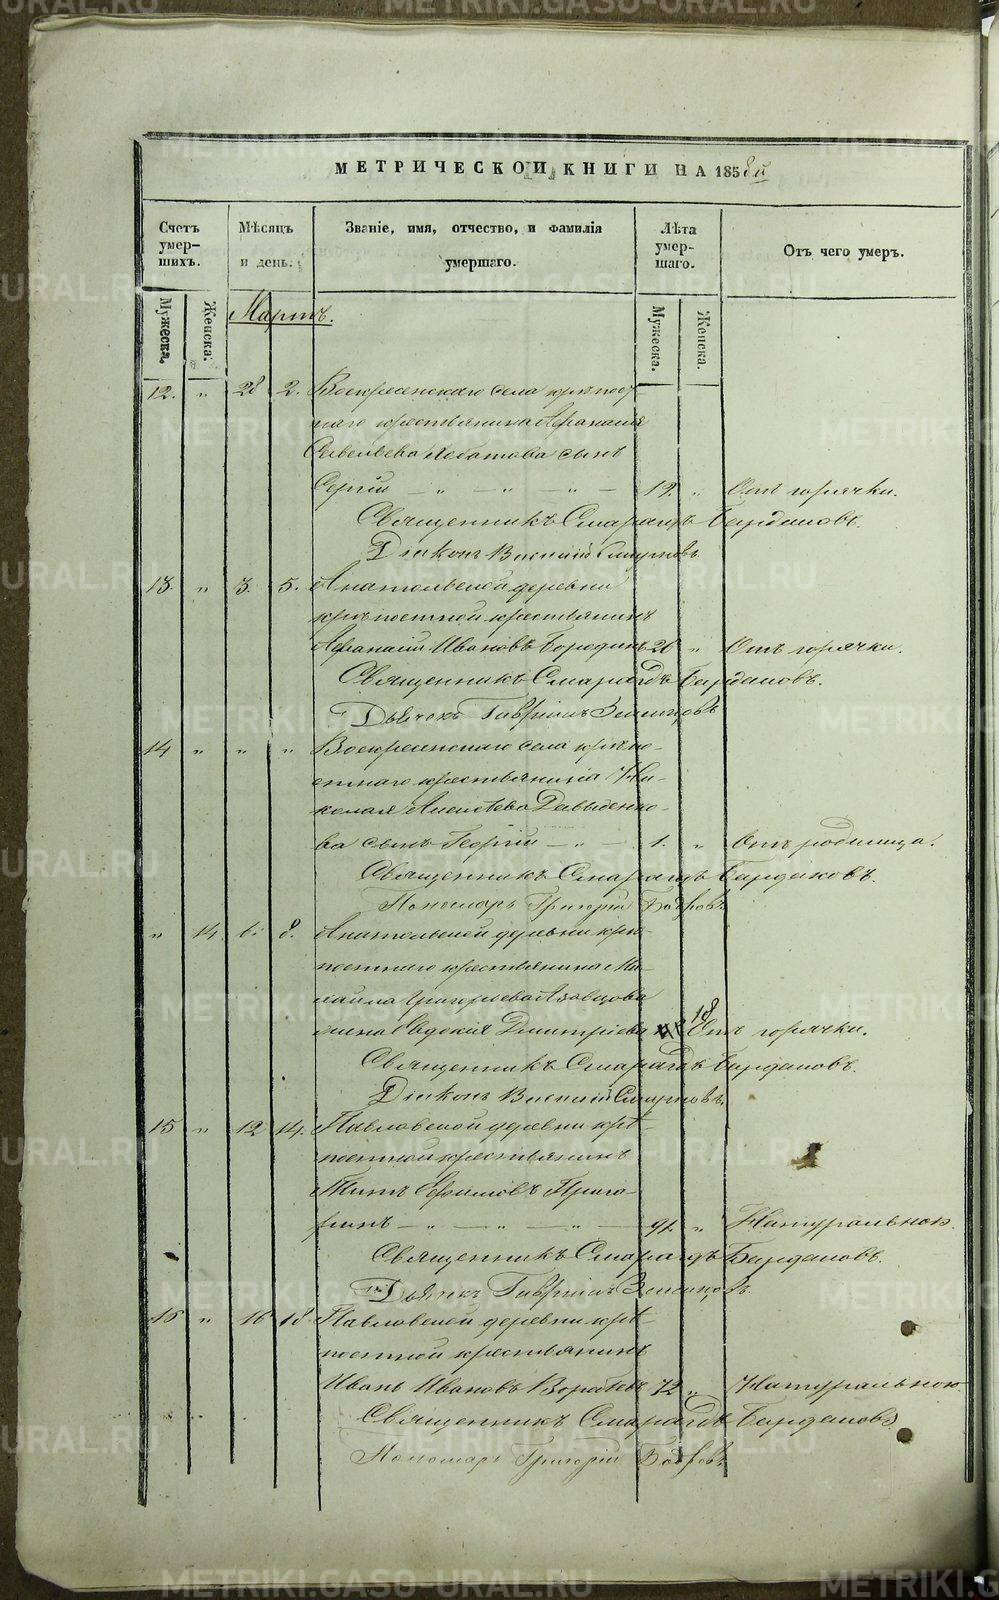 МЕТРИЧЕСКОЙ КНИГИ НА 1858й
Счетъ умер-шихъ.
Мѣсяцъ и день.
Званіе, имя, отчество, и фамилія умершаго.
Лѣта умер-шаго.
Отъ чего умеръ.
Мужеска. Женска. Мартъ. Мужеска. Женска.
12. " 28 2. Воскресенскаго села крѣпост-
наго крестьянина Афанасія
Савельева сынъ
Сергій — " — " — " — 12. " Отъ горячки.
Священникъ Смарагдъ Бардаковъ.
Діаконъ Василій Смирновъ
13. " 3. 5. Анатольской деревни
крѣпостной крестьянинъ
Афанасій Ивановъ Бородинъ 20 " Отъ горячки.
Священникъ Смарагдъ Бардаковъ.
Дьячекъ Гавріилъ
14 " " " Воскресенскаго села крѣпо-
стнаго крестьянина Ни-
колая Алексѣева Давыденко-
ва сынъ Георгій — " — 1. " Отъ родимца.
Священникъ Смарагдъ Бардаковъ.
Пономарь Григорій Бобровъ
" 14. 6. 8. Анатольской деревни крѣ-
постнаго крестьянина Ми-
хаила Григорьева
жена Евдокія Дмитріева 18 Отъ горячки.
Священникъ Смарагдъ Бардаковъ.
Діаконъ Василій Смирновъ.
15 " 12 14. Павловской деревни крѣ-
постной крестьянинъ
Титъ Ефимовъ Григо-
— " — " — 91. " Натуральною.
Священникъ Смарагдъ Бардаковъ.
Дьячекъ Гавріилъ
16 " 16 18. Павловской деревни крѣ-
постной крестьянинъ
Иванъ Ивановъ 72 " Натуральною.
Священникъ Смарагдъ Бардаковъ
Пономарь Григорій Бобровъ
METRIKI.GASO-URAL.RU